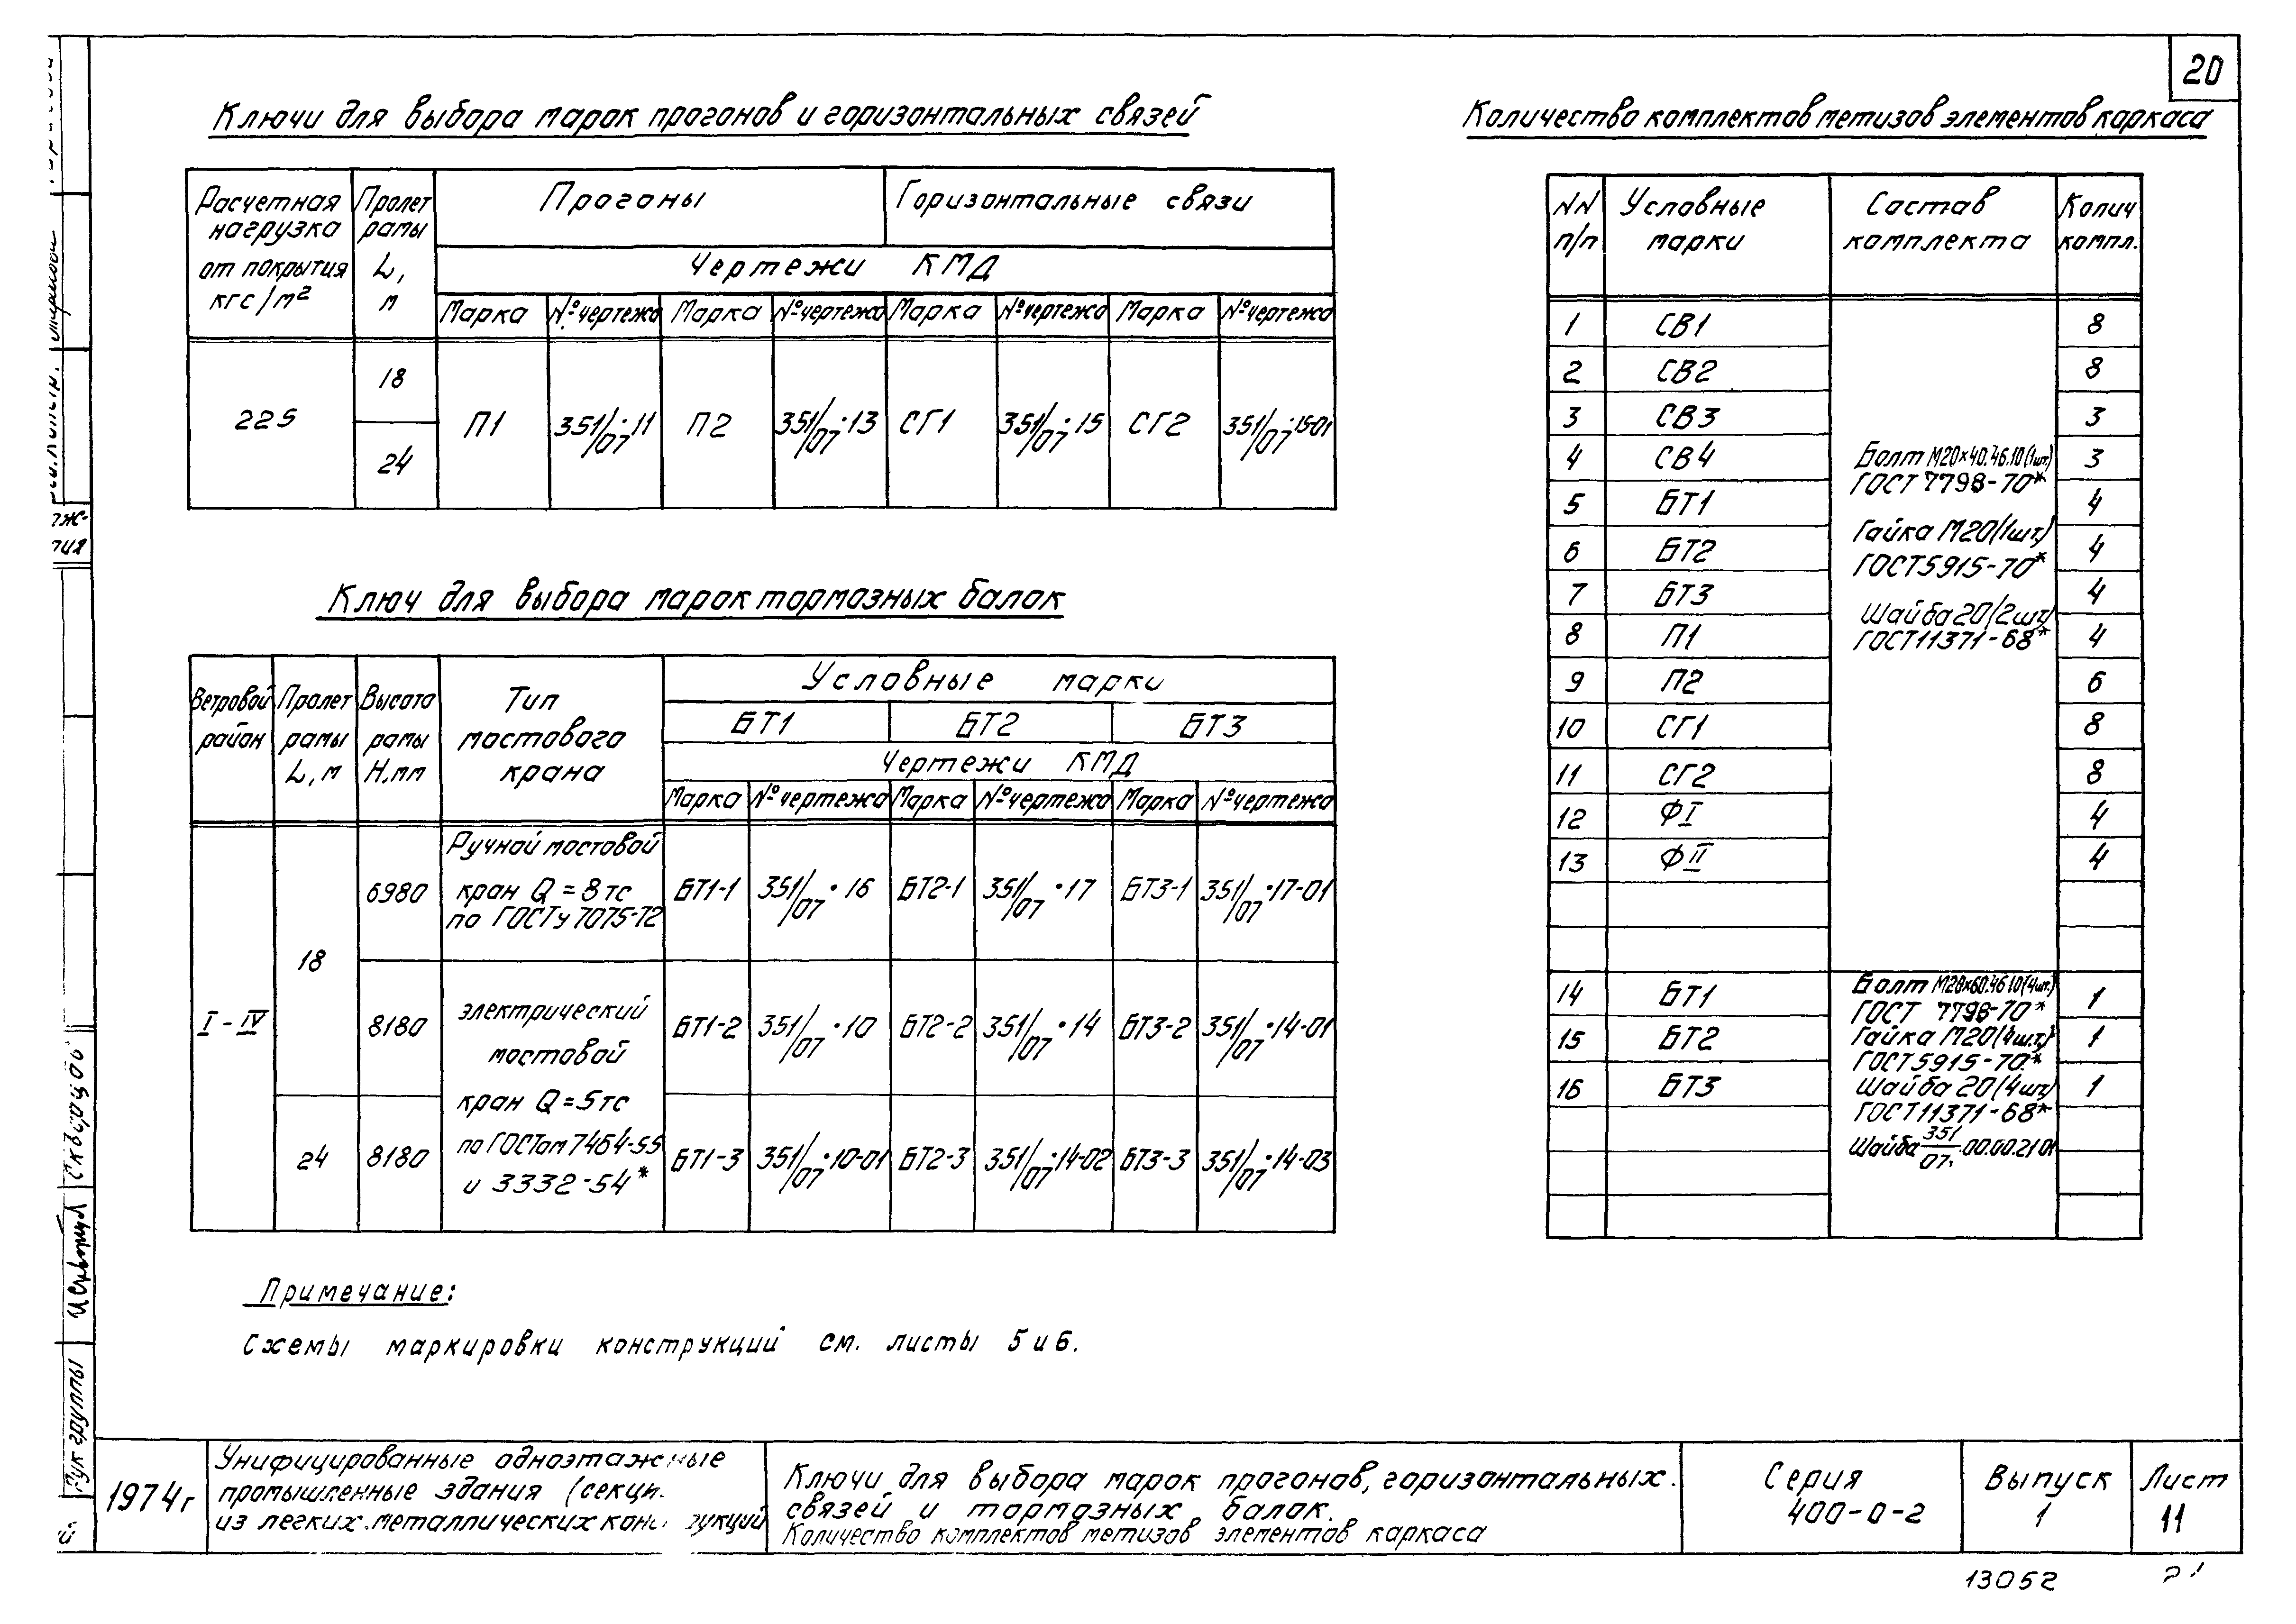 20
Ключи для выбора марок прогонов и горизонтальных связей
Расчетная нагрузка от покрытия кгс/м²
Пролет рамы L, м
Прогоны
Горизонтальные связи
Чертежи КМД
Марка № чертежа Марка № чертежа Марка № чертежа Марка № чертежа
225
18
24
П1 351/07·11 П2 351/07·13 СГ1 351/07·15 СГ2 351/07·15-01
Ключ для выбора марок тормозных балок
Ветровой район
Пролет рамы L, м
Высота рамы Н, мм
Тип мостового крана
Условные марки
БТ1 БТ2 БТ3
Чертежи КМД
Марка № чертежа Марка № чертежа Марка № чертежа
I-IV
18
6980
Ручной мостовой
кран Q=8тс
по ГОСТу 7075-72
БТ1-1 351/07·16 БТ2-1 351/07·17 БТ3-1 351/07·17-01
8180
электрический
мостовой
кран Q=5тс
по ГОСТам 7464-55
и 3332-54*
БТ1-2 351/07·10 БТ2-2 351/07·14 БТ3-2 351/07·14-01
24
8180
БТ1-3 351/07·10-01 БТ2-3 351/07·14-02 БТ3-3 351/07·14-03
Примечание:
Схемы маркировки конструкций см. листы 5 и 6.
Количество комплектов метизов элементов каркаса
NN п/п
Условные марки
Состав комплекта
Колич компл.
1 СВ1 8
2 СВ2 8
3 СВ3 3
4 СВ4 3
5 БТ1 4
6 БТ2 4
7 БТ3 4
8 П1 4
9 П2 6
10 СГ1 8
11 СГ2 8
12 ФI 4
13 ФII 4
Болт М20×40.46.10(1шт.)
ГОСТ 7798-70*
Гайка М20(1шт.)
ГОСТ5915-70*
Шайба 20(2шт)
ГОСТ11371-68*
14 БТ1 1
15 БТ2 1
16 БТ3 1
Болт М20×60.46 10(4шт.)
ГОСТ 7798-70*
Гайка М20(4шт.)
ГОСТ5915-70*
Шайба 20(4шт)
ГОСТ11371-68*
Шайба 351/07.00.00.21 01
1974г
Унифицированные одноэтажные
промышленные здания (секци.
из легких металлических
Ключи для выбора марок прогонов, горизонтальных
связей и тормозных балок.
Количество комплектов метизов элементов каркаса
Серия
400-0-2
Выпуск
1
Лист
11
13052
Рук группы
Скворцов